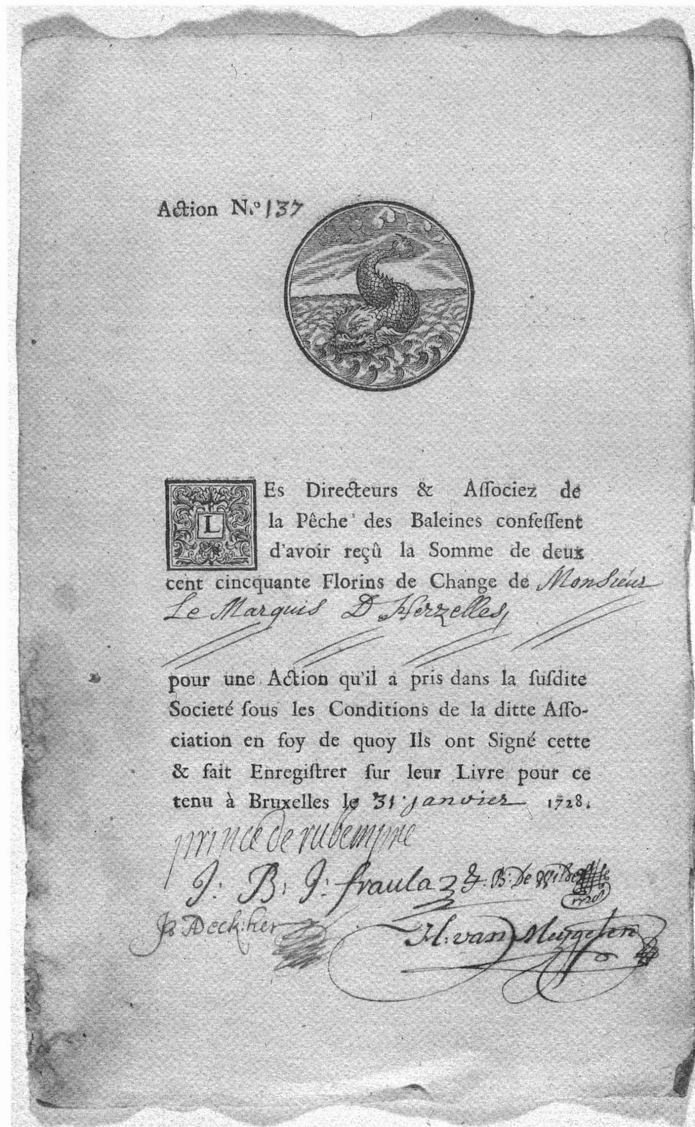 Action N.º 137
LEs Directeurs & Aſſociez de
la Pêche des Baleines confeſſent
d'avoir reçû la Somme de deux
cent cincquante Florins de Change de Monsieur
Le Marquis D Herzelles,
pour une Action qu'il a pris dans la ſuſdite
Societé ſous les Conditions de la ditte Aſſo-
ciation en foy de quoy Ils ont Signé cette
& fait Enregiſtrer ſur leur Livre pour ce
tenu à Bruxelles le 31 janvier 1728.
prince de rubempré
J: B: J: fraula
B: De
Deckher
H: van